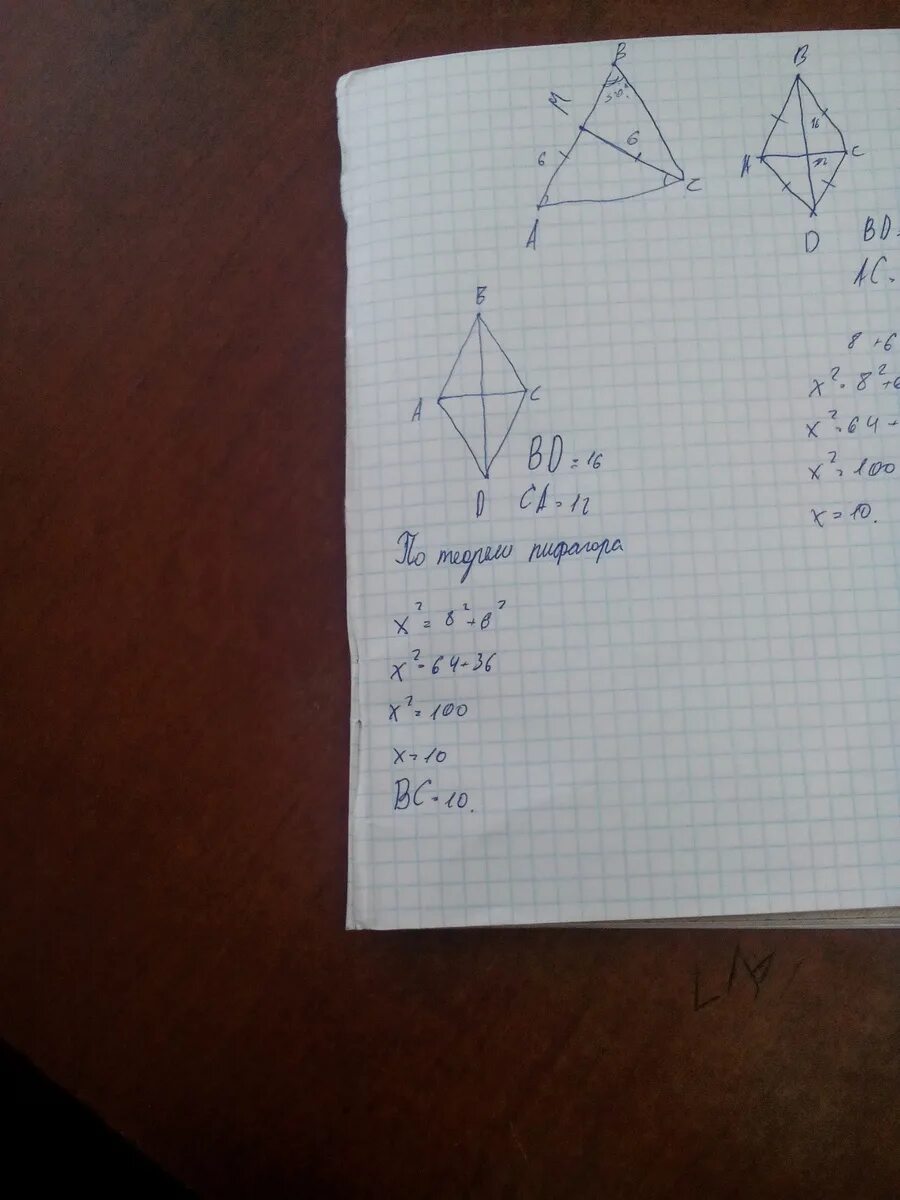 B
M
6
6
C
A
B
16
A
12
C
D
BD
AC
B
A
C
D
BD = 16
CA = 12
По теореме пифагора
x² = 8² + 6²
x² = 64 + 36
x² = 100
x = 10
BC = 10.
8 + 6
x² = 8² + 6
x² = 64 +
x² = 100
x = 10.